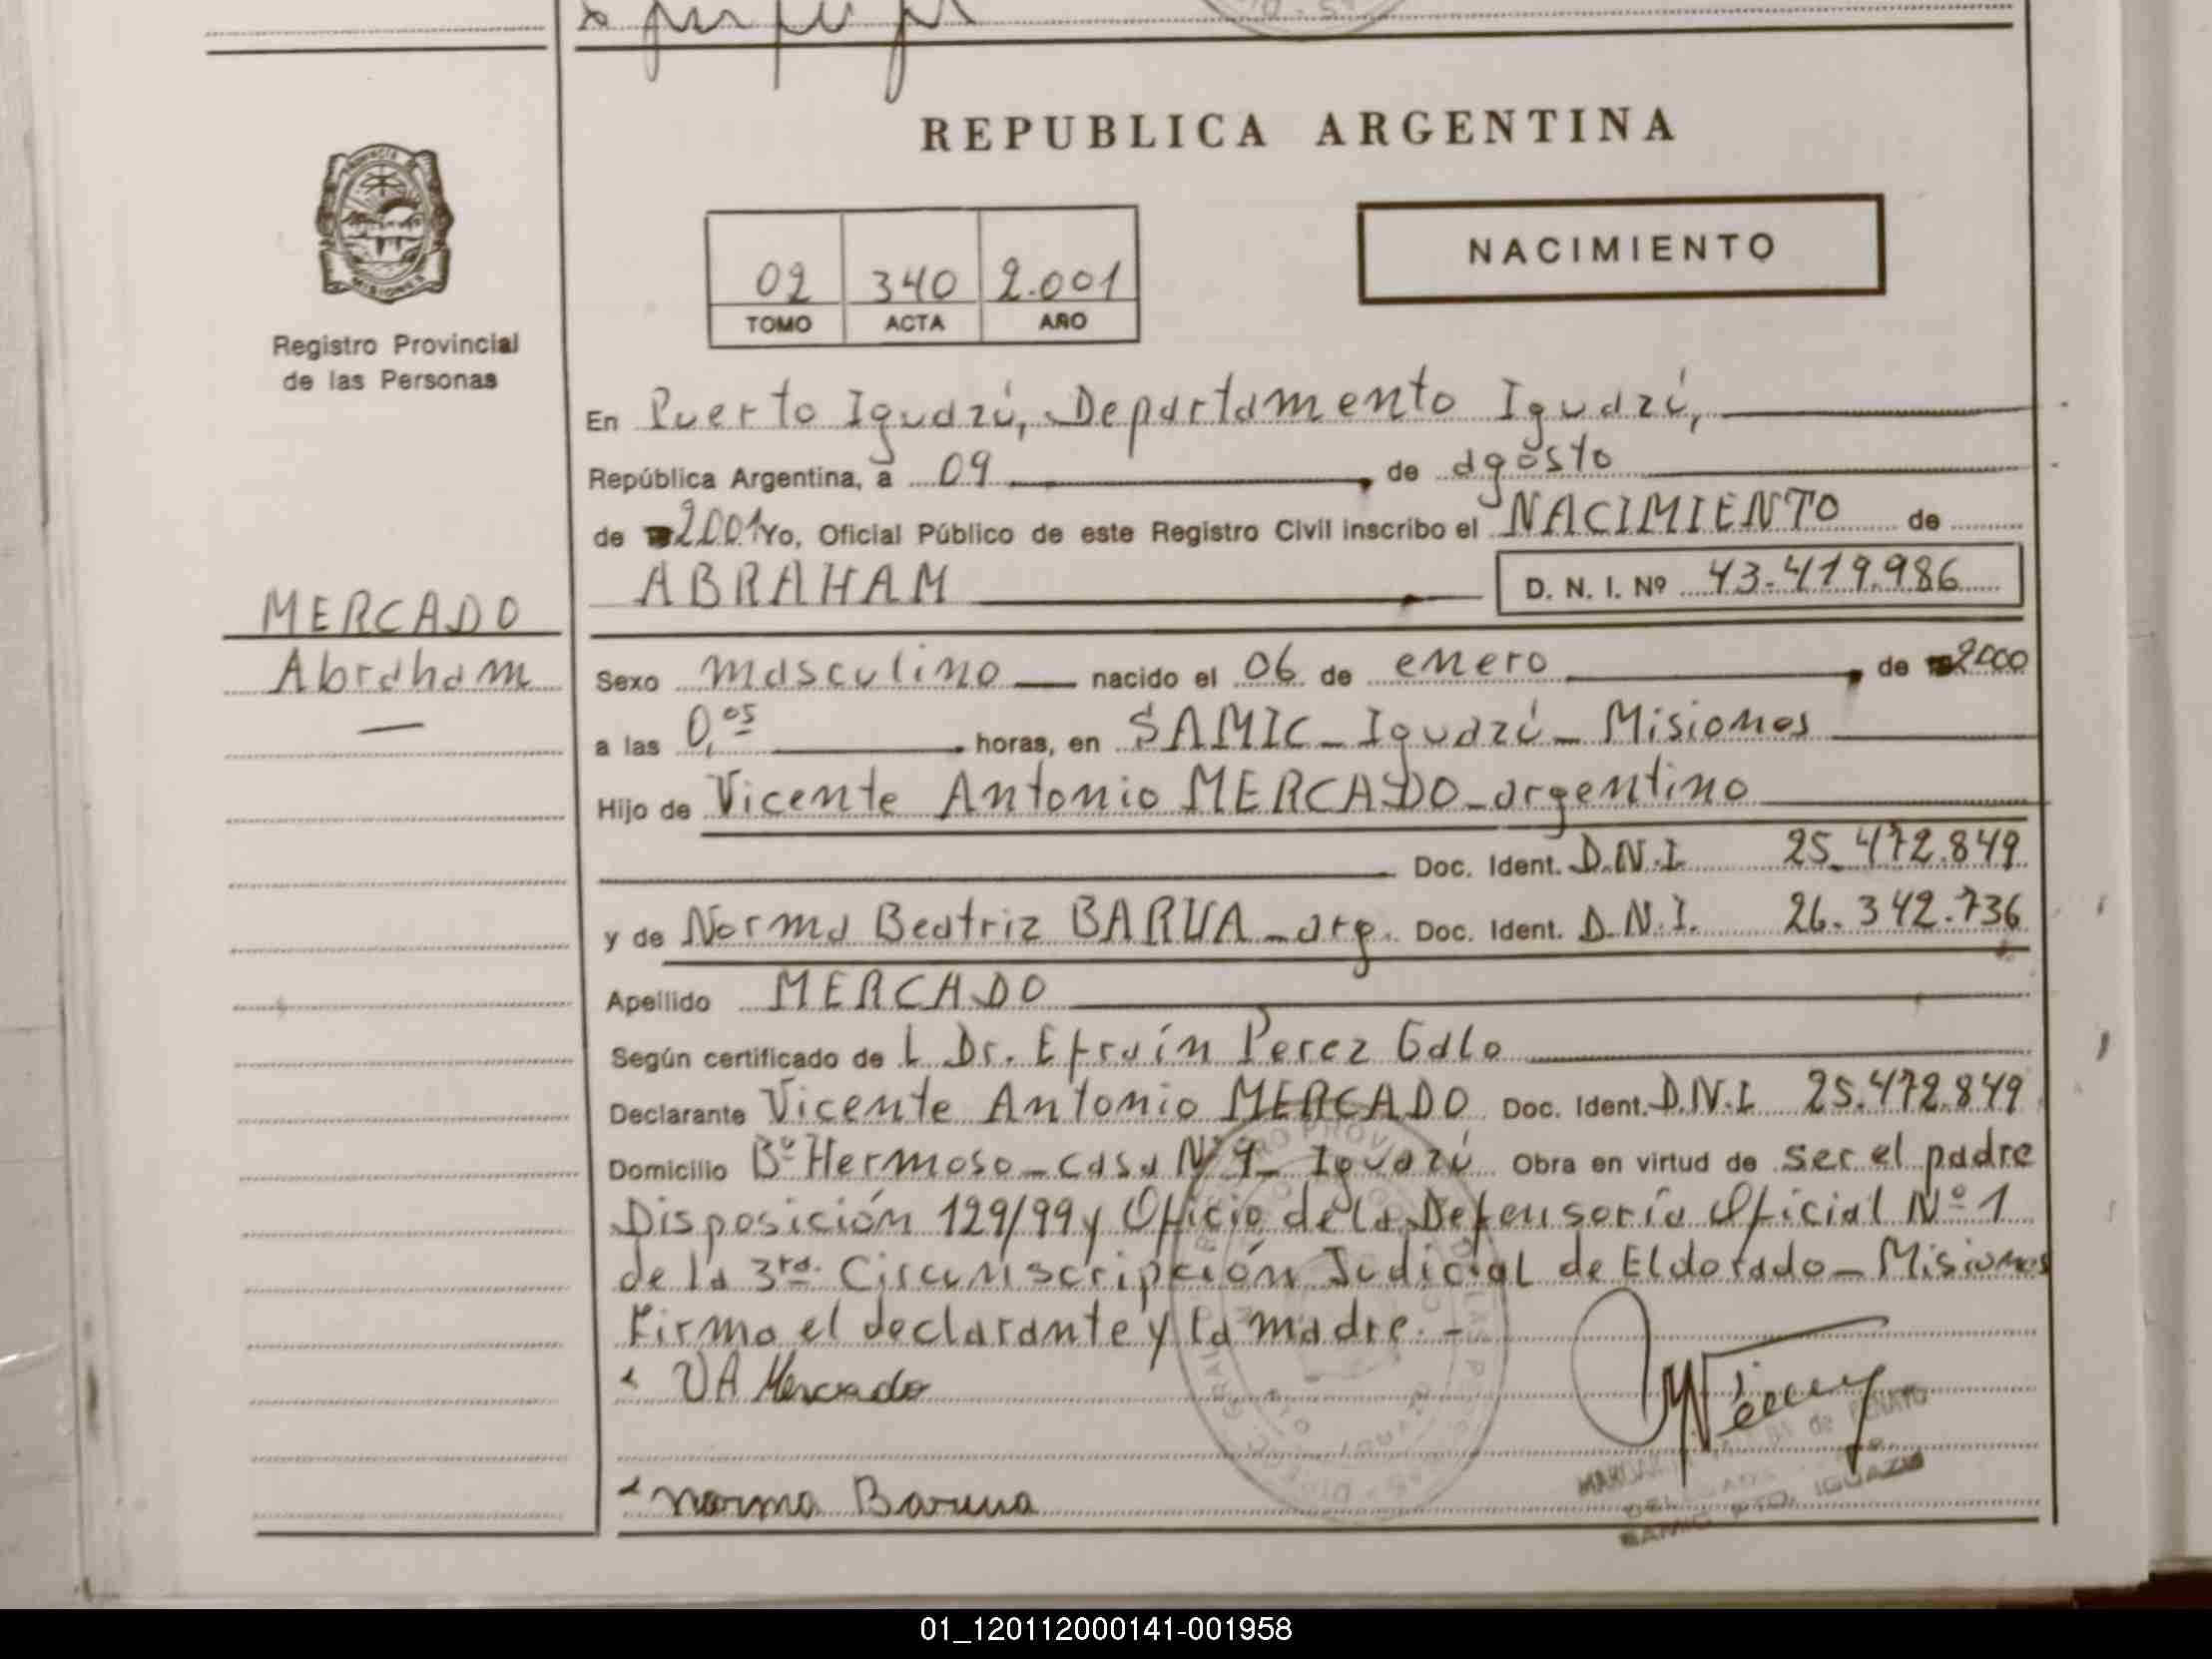 REPUBLICA ARGENTINA
NACIMIENTO
02 340 2.001
TOMO ACTA AÑO
PROVINCIA DE
MISIONES
Registro Provincial
de las Personas
MERCADO
Abraham
—
En Puerto Iguazú, Departamento Iguazú,
República Argentina, a 09 de agosto
de 2001 Yo, Oficial Público de este Registro Civil inscribo el NACIMIENTO de
ABRAHAM D. N. I. Nº 43.419.986
Sexo masculino nacido el 06 de enero de 2000
a las 0,05 horas, en SAMIC - Iguazú - Misiones
Hijo de Vicente Antonio MERCADO - argentino
Doc. Ident. D.N.I. 25.472.849
y de Norma Beatriz BARUA - arg. Doc. Ident. D.N.I. 26.342.736
Apellido MERCADO
Según certificado de L Dr. Efraín Perez Galo
Declarante Vicente Antonio MERCADO Doc. Ident. D.N.I. 25.472.849
Domicilio Bº Hermoso - casa Nº 9 - Iguazú Obra en virtud de ser el padre
Disposición 129/99 y Oficio de la Defensoría Oficial Nº 1
de la 3ra. Circunscripción Judicial de Eldorado - Misiones
Firma el declarante y la madre. -
VA Mercado
Norma Barua
SAMIC PTO. IGUAZU
01_120112000141-001958